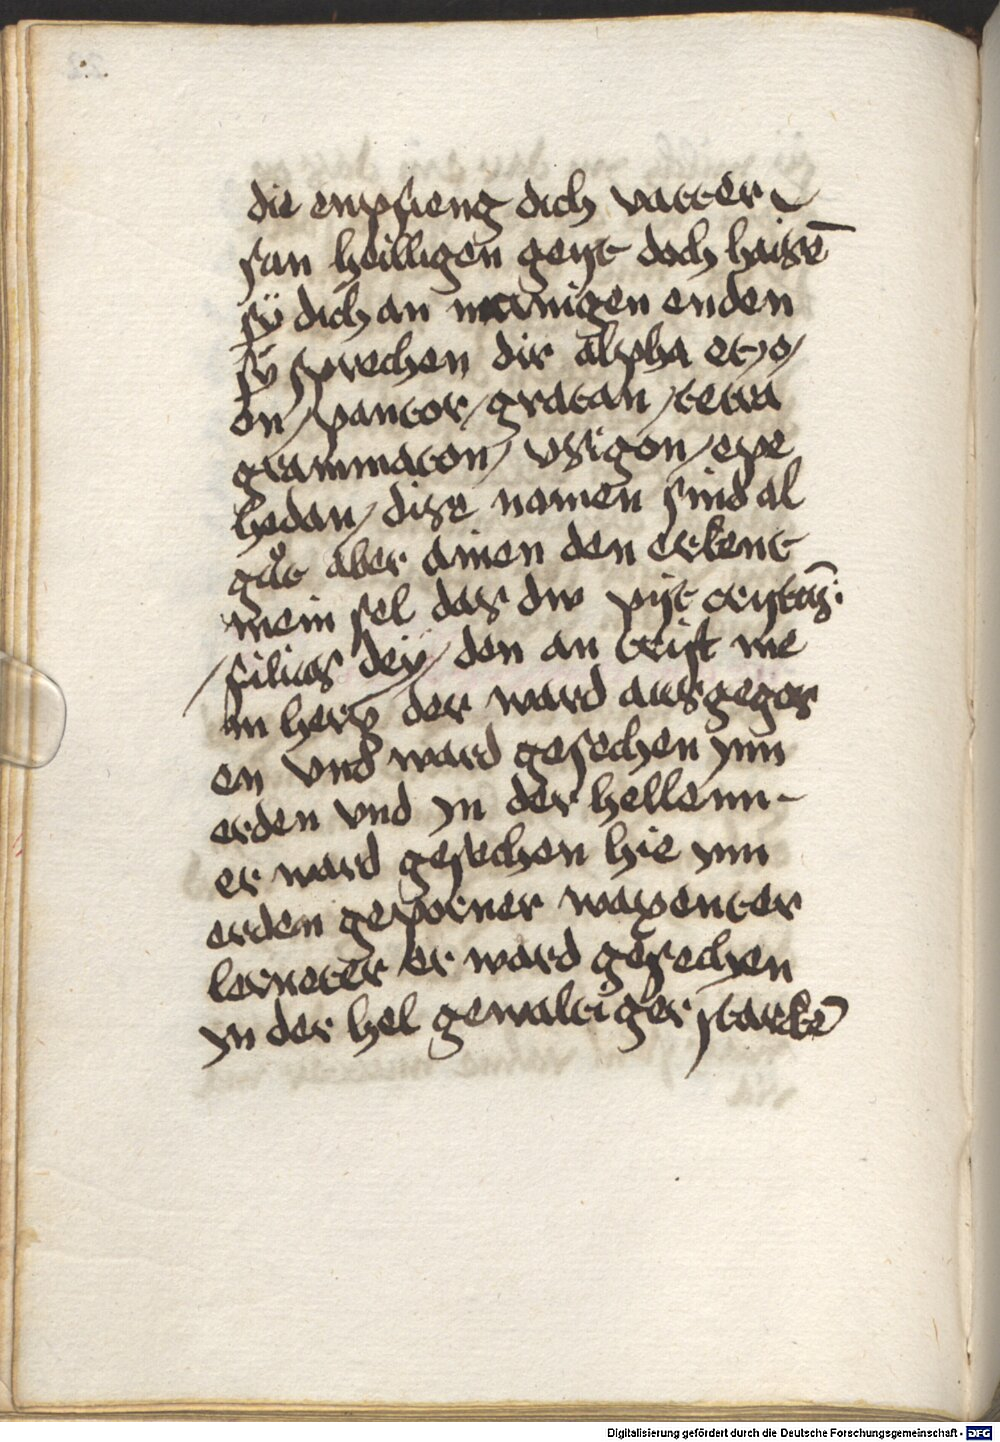 die empfieng dich vatter
sun heilligen geyst doch haissē
sÿ dich an manigen enden
sÿ sprechen dir alpha et / o /
on / pantor / gratan / tetra
grammaton / vsigon / epe
hedan / dise namen sind al
gůt aber ainen den erkent
mein sel das du pist cristus̄
/ filius deÿ / den an crist me
in hertz der ward ausgegos
en vnd ward gesechen ynn
erden vnd yn der hellenn -
er ward gesechen hie ynn
erden geporner wapenter
lerneter er ward gesechen
yn der hel gewaltiger starkē
Digitalisierung gefördert durch die Deutsche Forschungsgemeinschaft - DFG